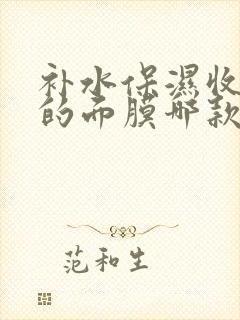 补水保濕收
的面膜哪款
范和生